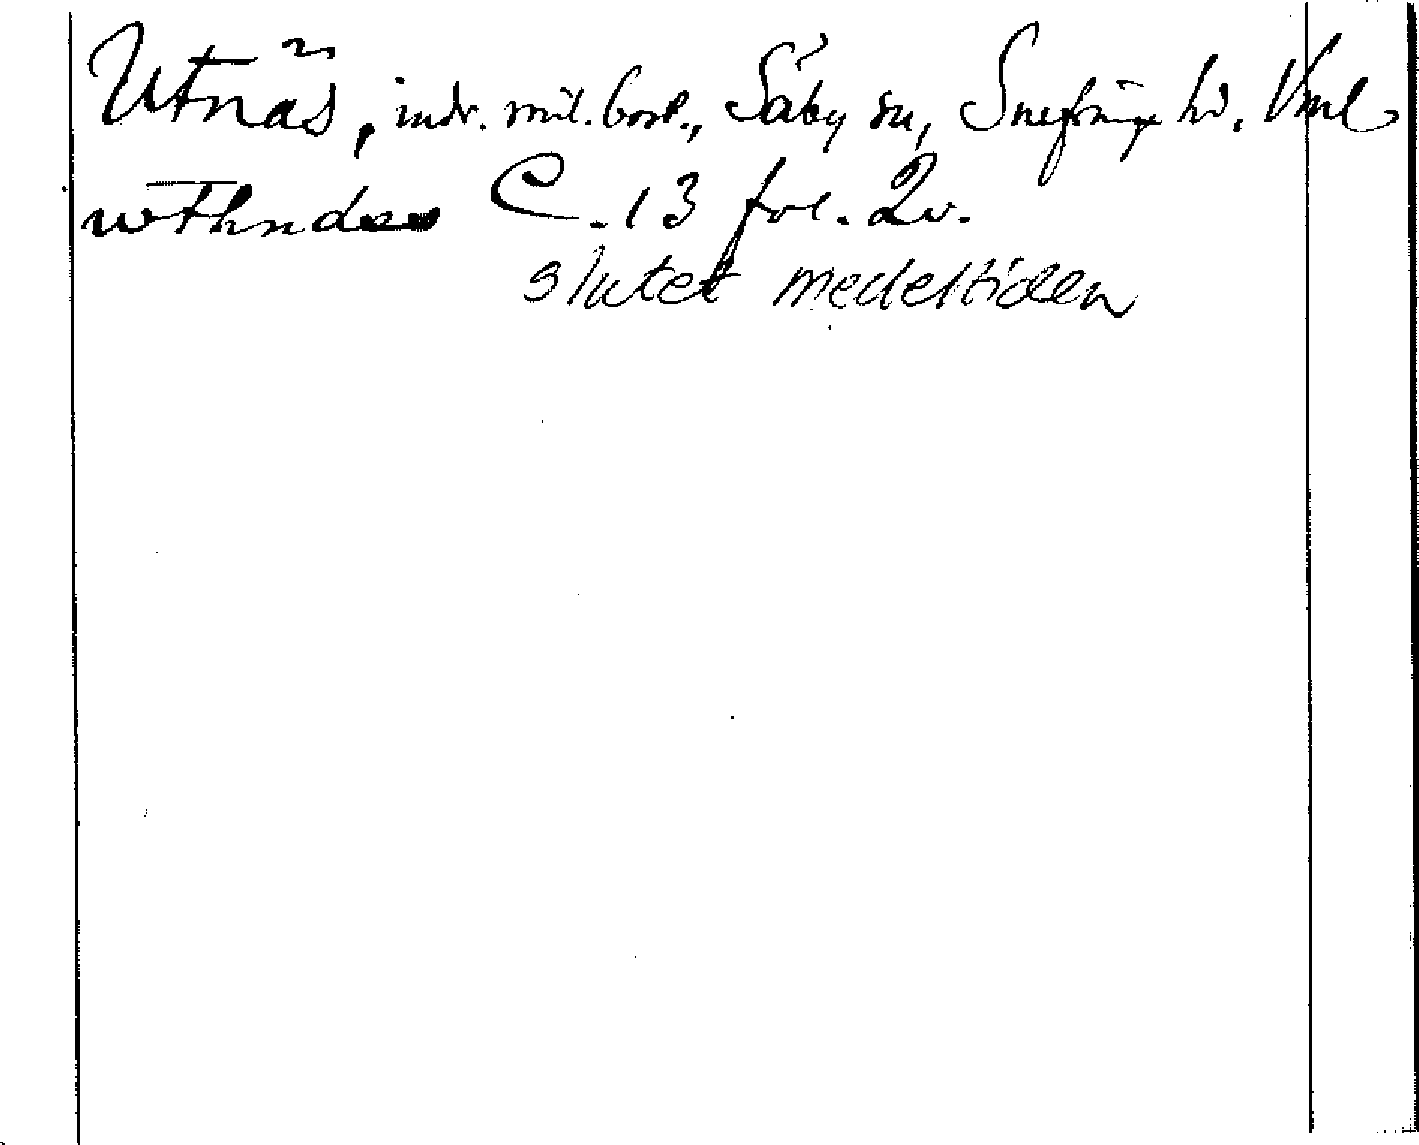 Utnäs, indr. mil. bost., Säby sn, Snefringe hd. Vml
wthndes C. 13 fol. 2v.
slutet medeltiden